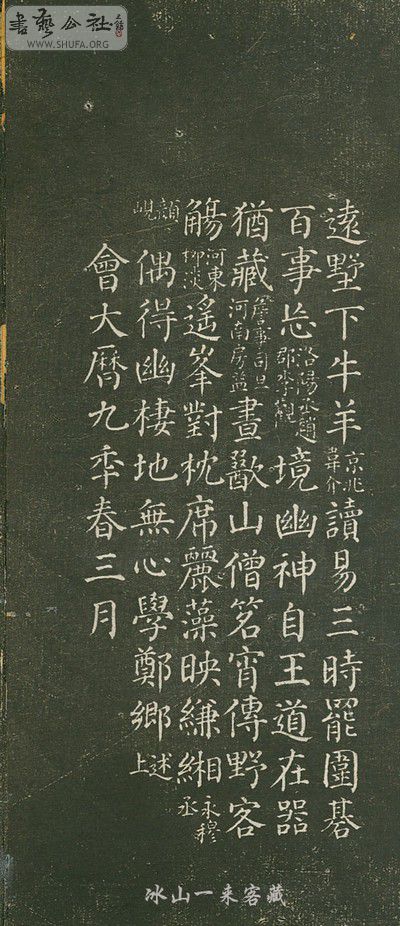 書藝公社
WWW.SHUFA.ORG
遠墅下牛羊京兆韋介讀易三時罷圍碁
百事忘洛陽丞趙郡李觀境幽神自王道在器
猶藏詹事司直河南房益晝歠山僧茗宵傳野客
觴河東柳淡遙峯對枕席麗藻映縑緗永穆丞
顏峴偶得幽棲地無心學鄭鄉述上
會大曆九年春三月
冰山一来客藏